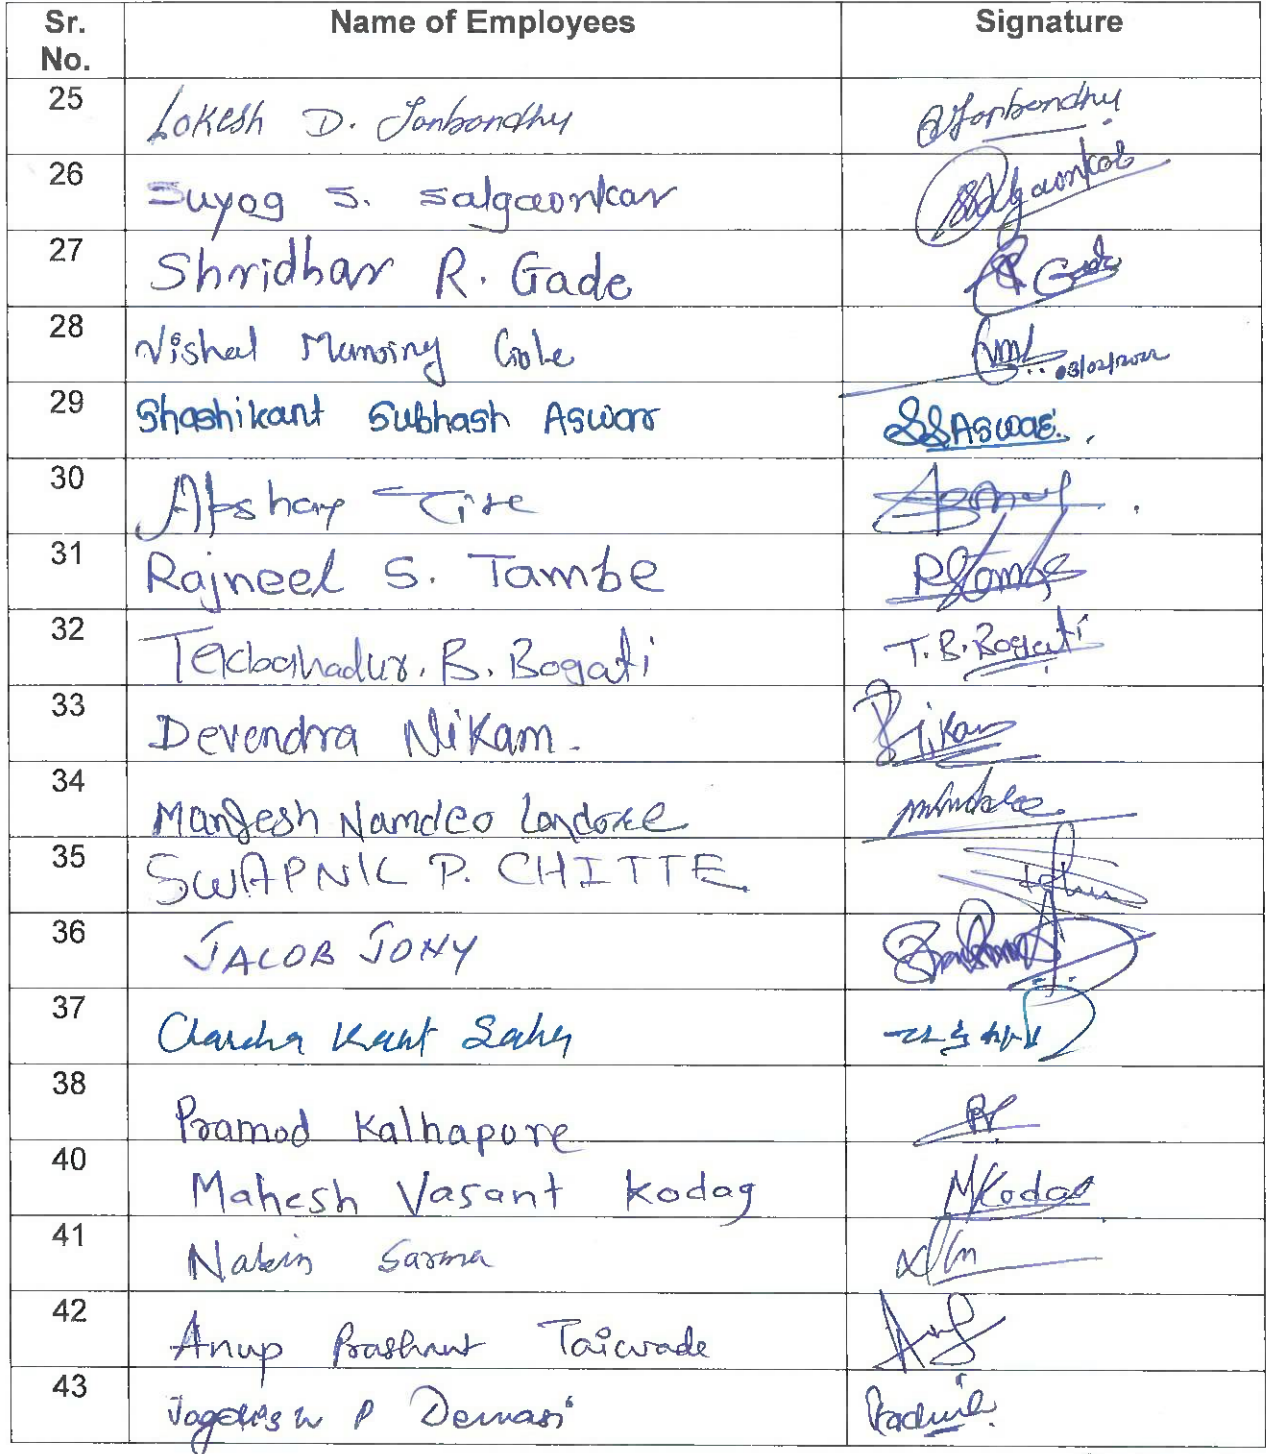 Sr. No. Name of Employees Signature
25 Lokesh D. Jonbondhu Jonbondhu
26 Suyog S. Salgaonkar Salgaonkar
27 Shridhar R. Gade Gade
28 Vishal 03/02/2022
29 Shashikant Subhash Aswar SSAswar
30 Akshay
31 Rajneel S. Tambe RSTambe
32 Tekbahadur. B. Bogati T. B. Bogati
33 Devendra Nikam. Nikam
34 Mangesh Namdeo Landore
35 SWAPNIL P. CHITTE
36 JACOB JONY
37 Chandra Kant Sahu
38 Pramod Kalhapure
40 Mahesh Vasant Kodag MKodag
41 Nabin Sarma
42 Anup Prashant Taiwade
43 P